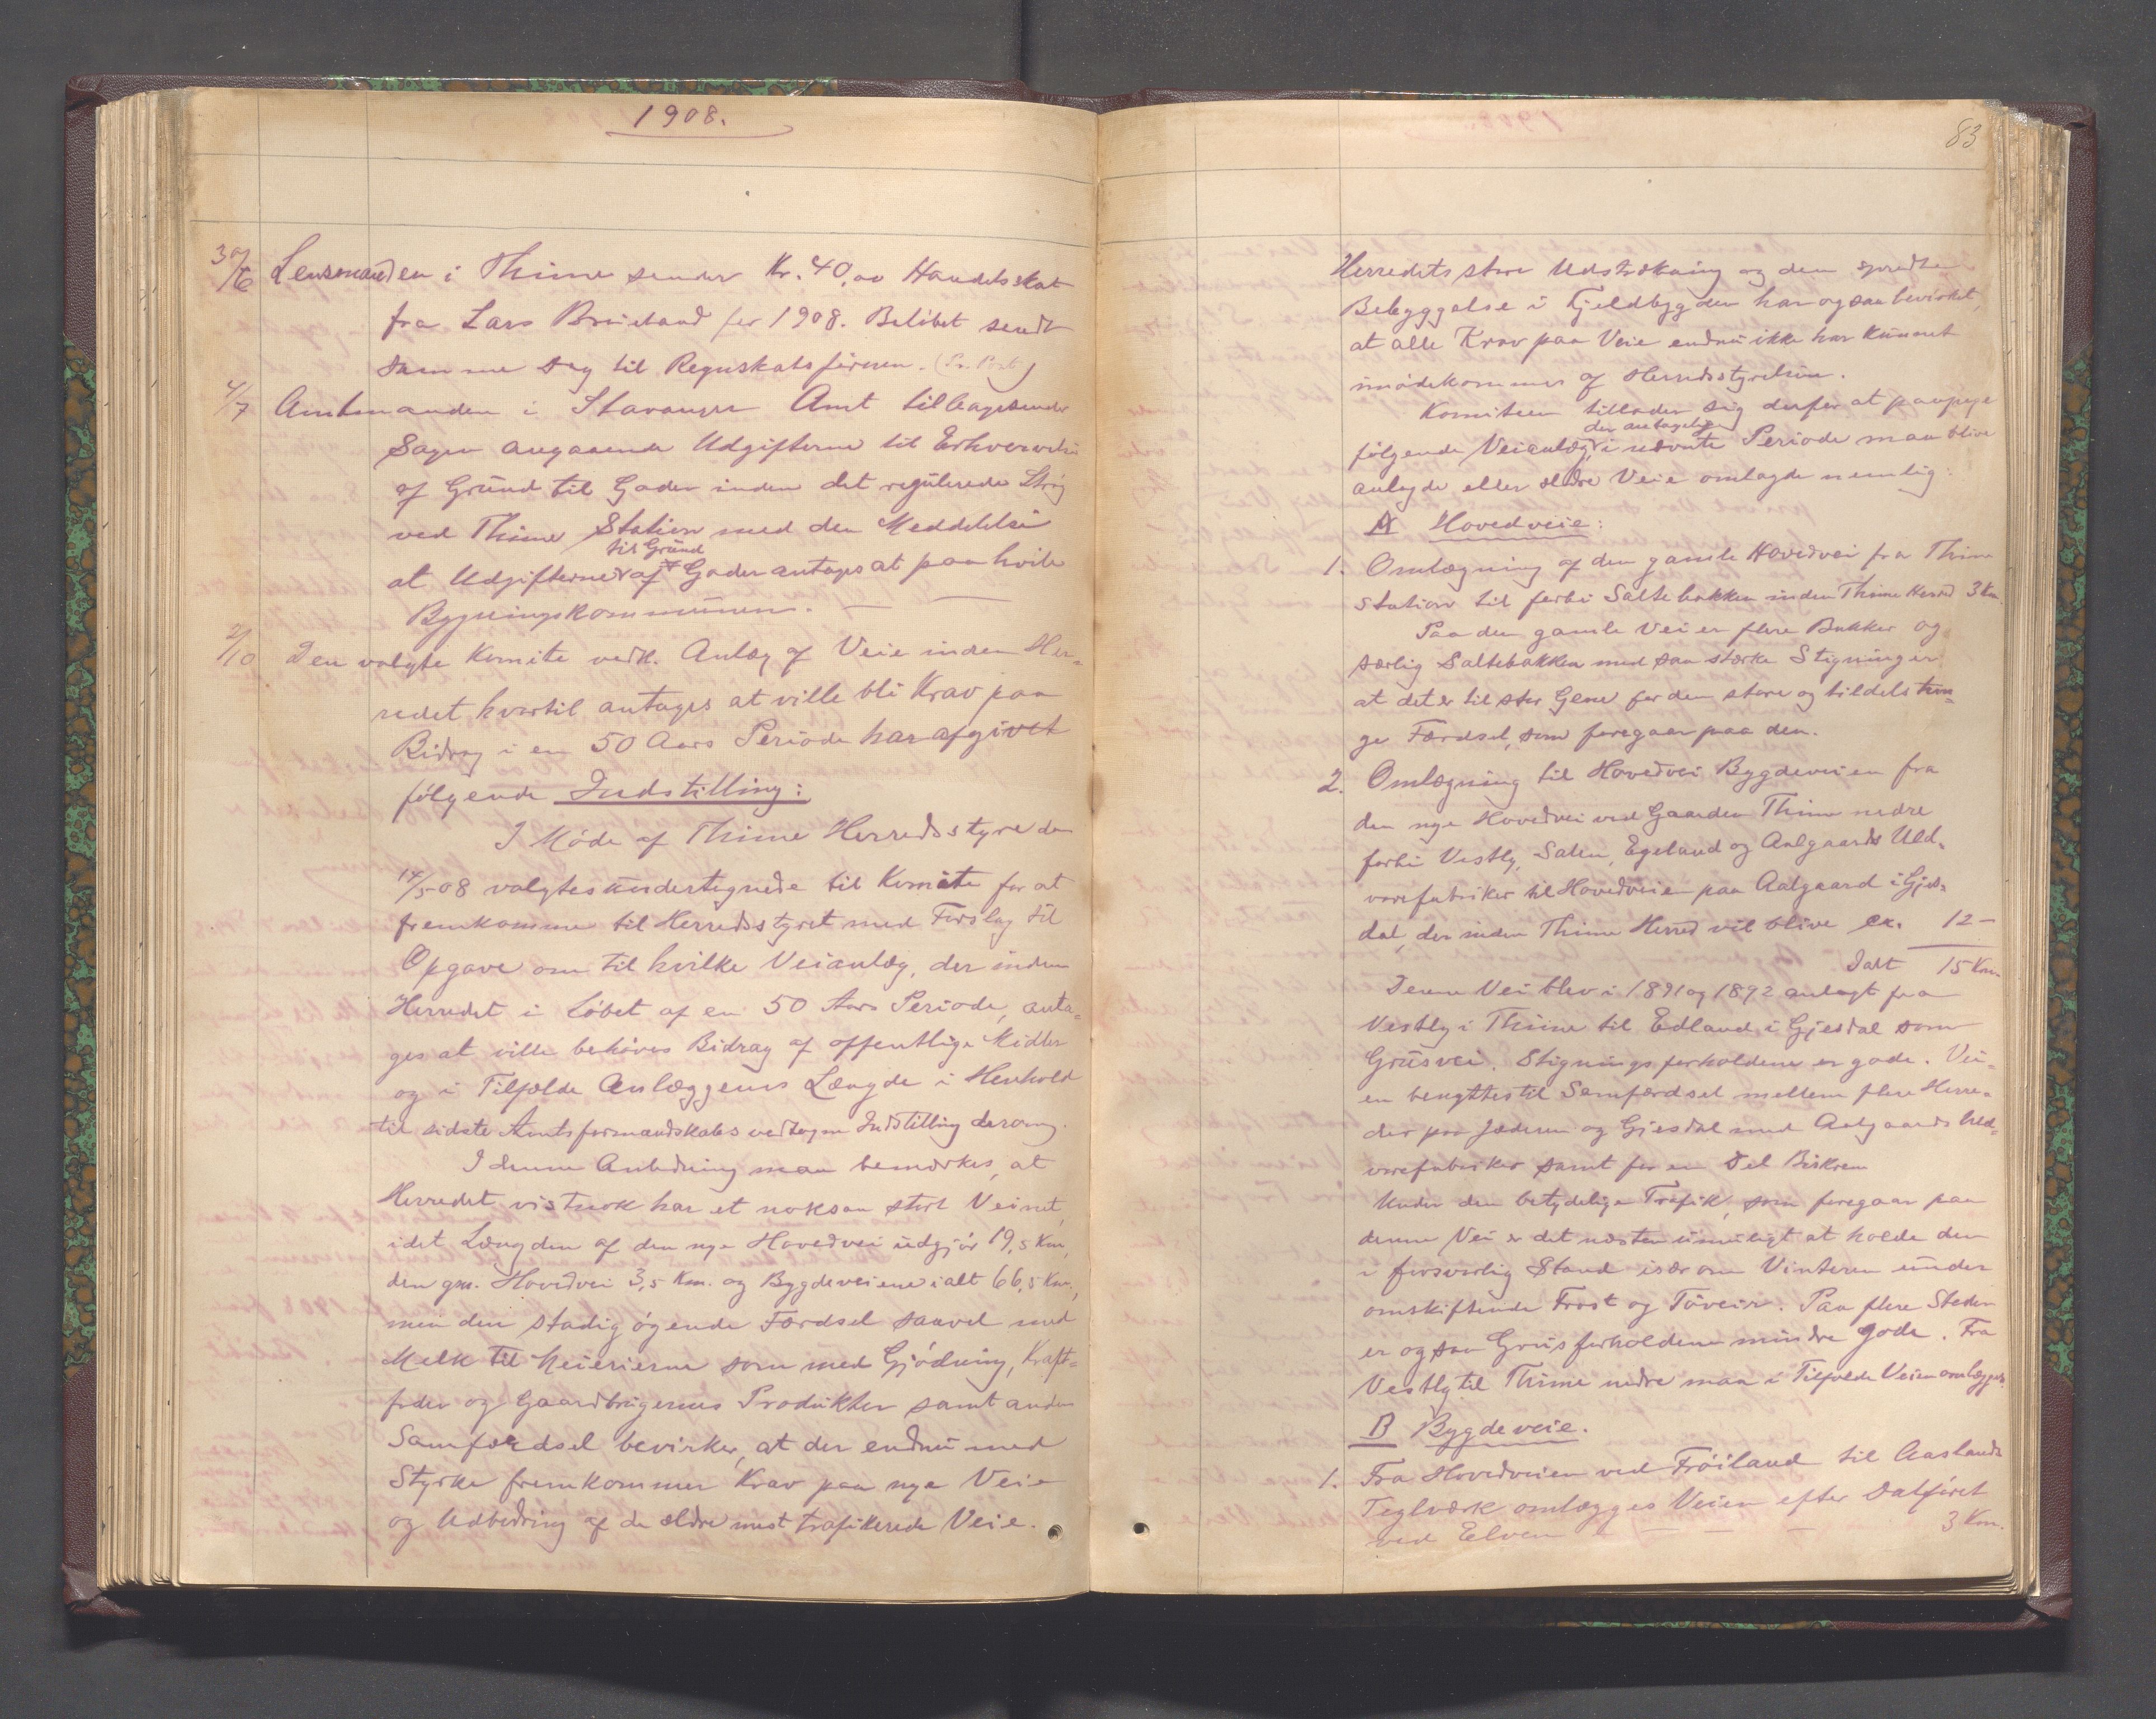 1908.
30/6 Lensmanden i Thime sender Kr. 40,00 Handelsskat
fra Lars Brueland for 1908. Beløbet sendt
samme Dag til Regnskabsføreren. (Pr. Post)
4/7 Amtmanden i Stavanger Amt tilbagesender
Sagen angaaende Udgifterne til Erhvervelse
af Grund til Gader inden det regulerede Strøg
ved Thime Station med den Meddelelse
til Grund
at Udgifterne af Gader antages at paahvile
Bygningskommunen.
2/10 Den valgte Komite vedk. Anlæg af Veie inden Her-
redet hvortil antages at ville bli Krav paa
Bidrag i en 50 Aars Periode har afgivet
følgende Indstilling:
I Møde af Thime Herredsstyre den
14/5-08 valgtes undertegnede til Komite for at
fremkomme til Herredsstyret med Forslag til
Opgave om til hvilke Veianlæg, der inden
Herredet i Løbet af en 50 Aars Periode, anta-
ges at ville behøves Bidrag af offentlige Midler
og i Tilfælde Anlæggenes Længde i Henhold
til sidste Amtsformandskabs vedtagne Indstilling derom.
I denne Anledning maa bemærkes, at
Herredet vistnok har et noksaa stort Veinet,
idet Længden af den nye Hovedvei udgjør 19,5 Km,
den gm. Hovedvei 3,5 Km. og Bygdeveiene ialt 66,5 Km.,
men den stadig øgende Færdsel saavel med
Melk til Meierierne som med Gjødning, Kraft-
foder og Gaardbrugernes Produkter samt anden
Samfærdsel bevirker, at der endnu med
Styrke fremkommer Krav paa nye Veie
og Udbedring af de ældre mest trafikerede Veie.
83
Herredets store Udstrækning og den spredte
Bebyggelse i Fjeldbygden har ogsaa bevirket,
at alle Krav paa Veie endnu ikke har kunnet
imødekommes af Herredsstyrelsen.
Komiteen tillader sig derfor at paapege
der antagelig
følgende Veianlæg, i nævnte Periode maa blive
anlagde eller ældre Veie omlagde nemlig:
A Hovedveie:
1. Omlægning af den gamle Hovedvei fra Thime
Station til forbi Saltebakken inden Thime Herred 3 Km.
Paa den gamle Vei er flere Bakker og
særlig Saltebakken med saa stærke Stigninger
at det er til stor Gene for den store og tildels tun-
ge Færdsel, som foregaar paa den.
2. Omlægning til Hovedvei Bygdeveien fra
den nye Hovedvei ved Gaarden Thime nedre
forbi Vestly, Salen, Egeland og Aalgaards Uld-
varefabriker til Hovedveien paa Aalgaard i Gjes-
dal, der inden Thime Herred vil blive ca. 12 -
Ialt 15 Km.
Denne Vei blev i 1891 og 1892 anlagt fra
Vestly i Thime til Edland i Gjesdal som
Grusvei. Stigningsforholdene er gode. Vei-
en benyttes til Samfærdsel mellem flere Herre-
der paa Jæderen og Gjesdal med Aalgaards Uld-
varefabriker samt for en Del Bjerkrem
Under den betydelige Trafik, som foregaar paa
denne Vei er det næsten umuligt at holde den
i forsvarlig Stand især om Vinteren under
omskiftende Frost og Tøveir. Paa flere Steder
er ogsaa Grusforholdene mindre gode. Fra
Vestly til Thime nedre maa i Tilfælde Veien omlægges.
B Bygdeveie.
1. Fra Hovedveien ved Frøiland til Aaslands
Teglværk omlægges Veien efter Dalføret
ved Elven - - - 3 Km.